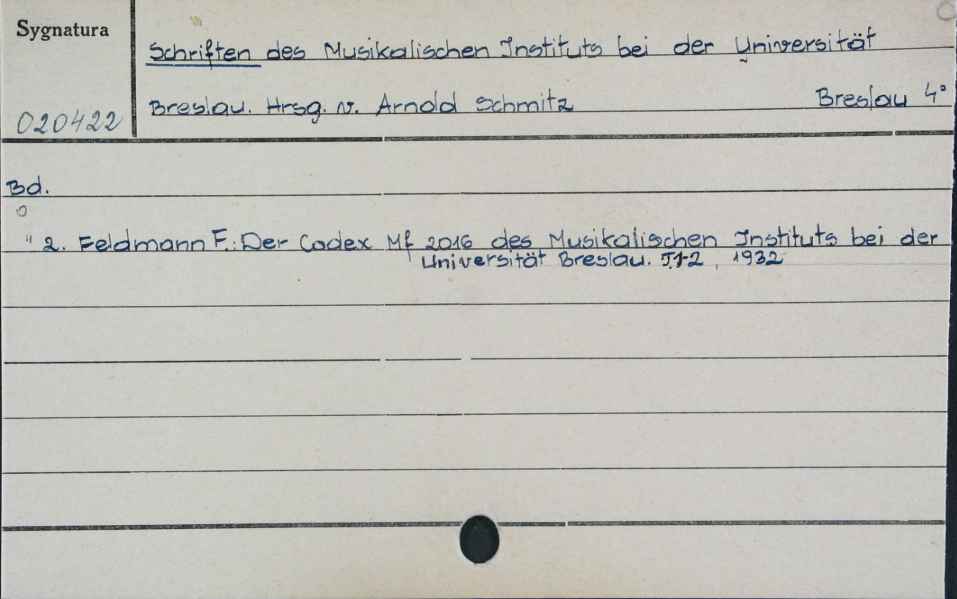 Sygnatura
020422
Schriften des Musikalischen Instituts bei der Universität
Breslau. Hrsg. v. Arnold Schmitz Breslau 4°
Bd.
" 2. Feldmann F.: Der Codex Mf 2016 des Musikalischen Instituts bei der
Universität Breslau. T.1-2, 1932